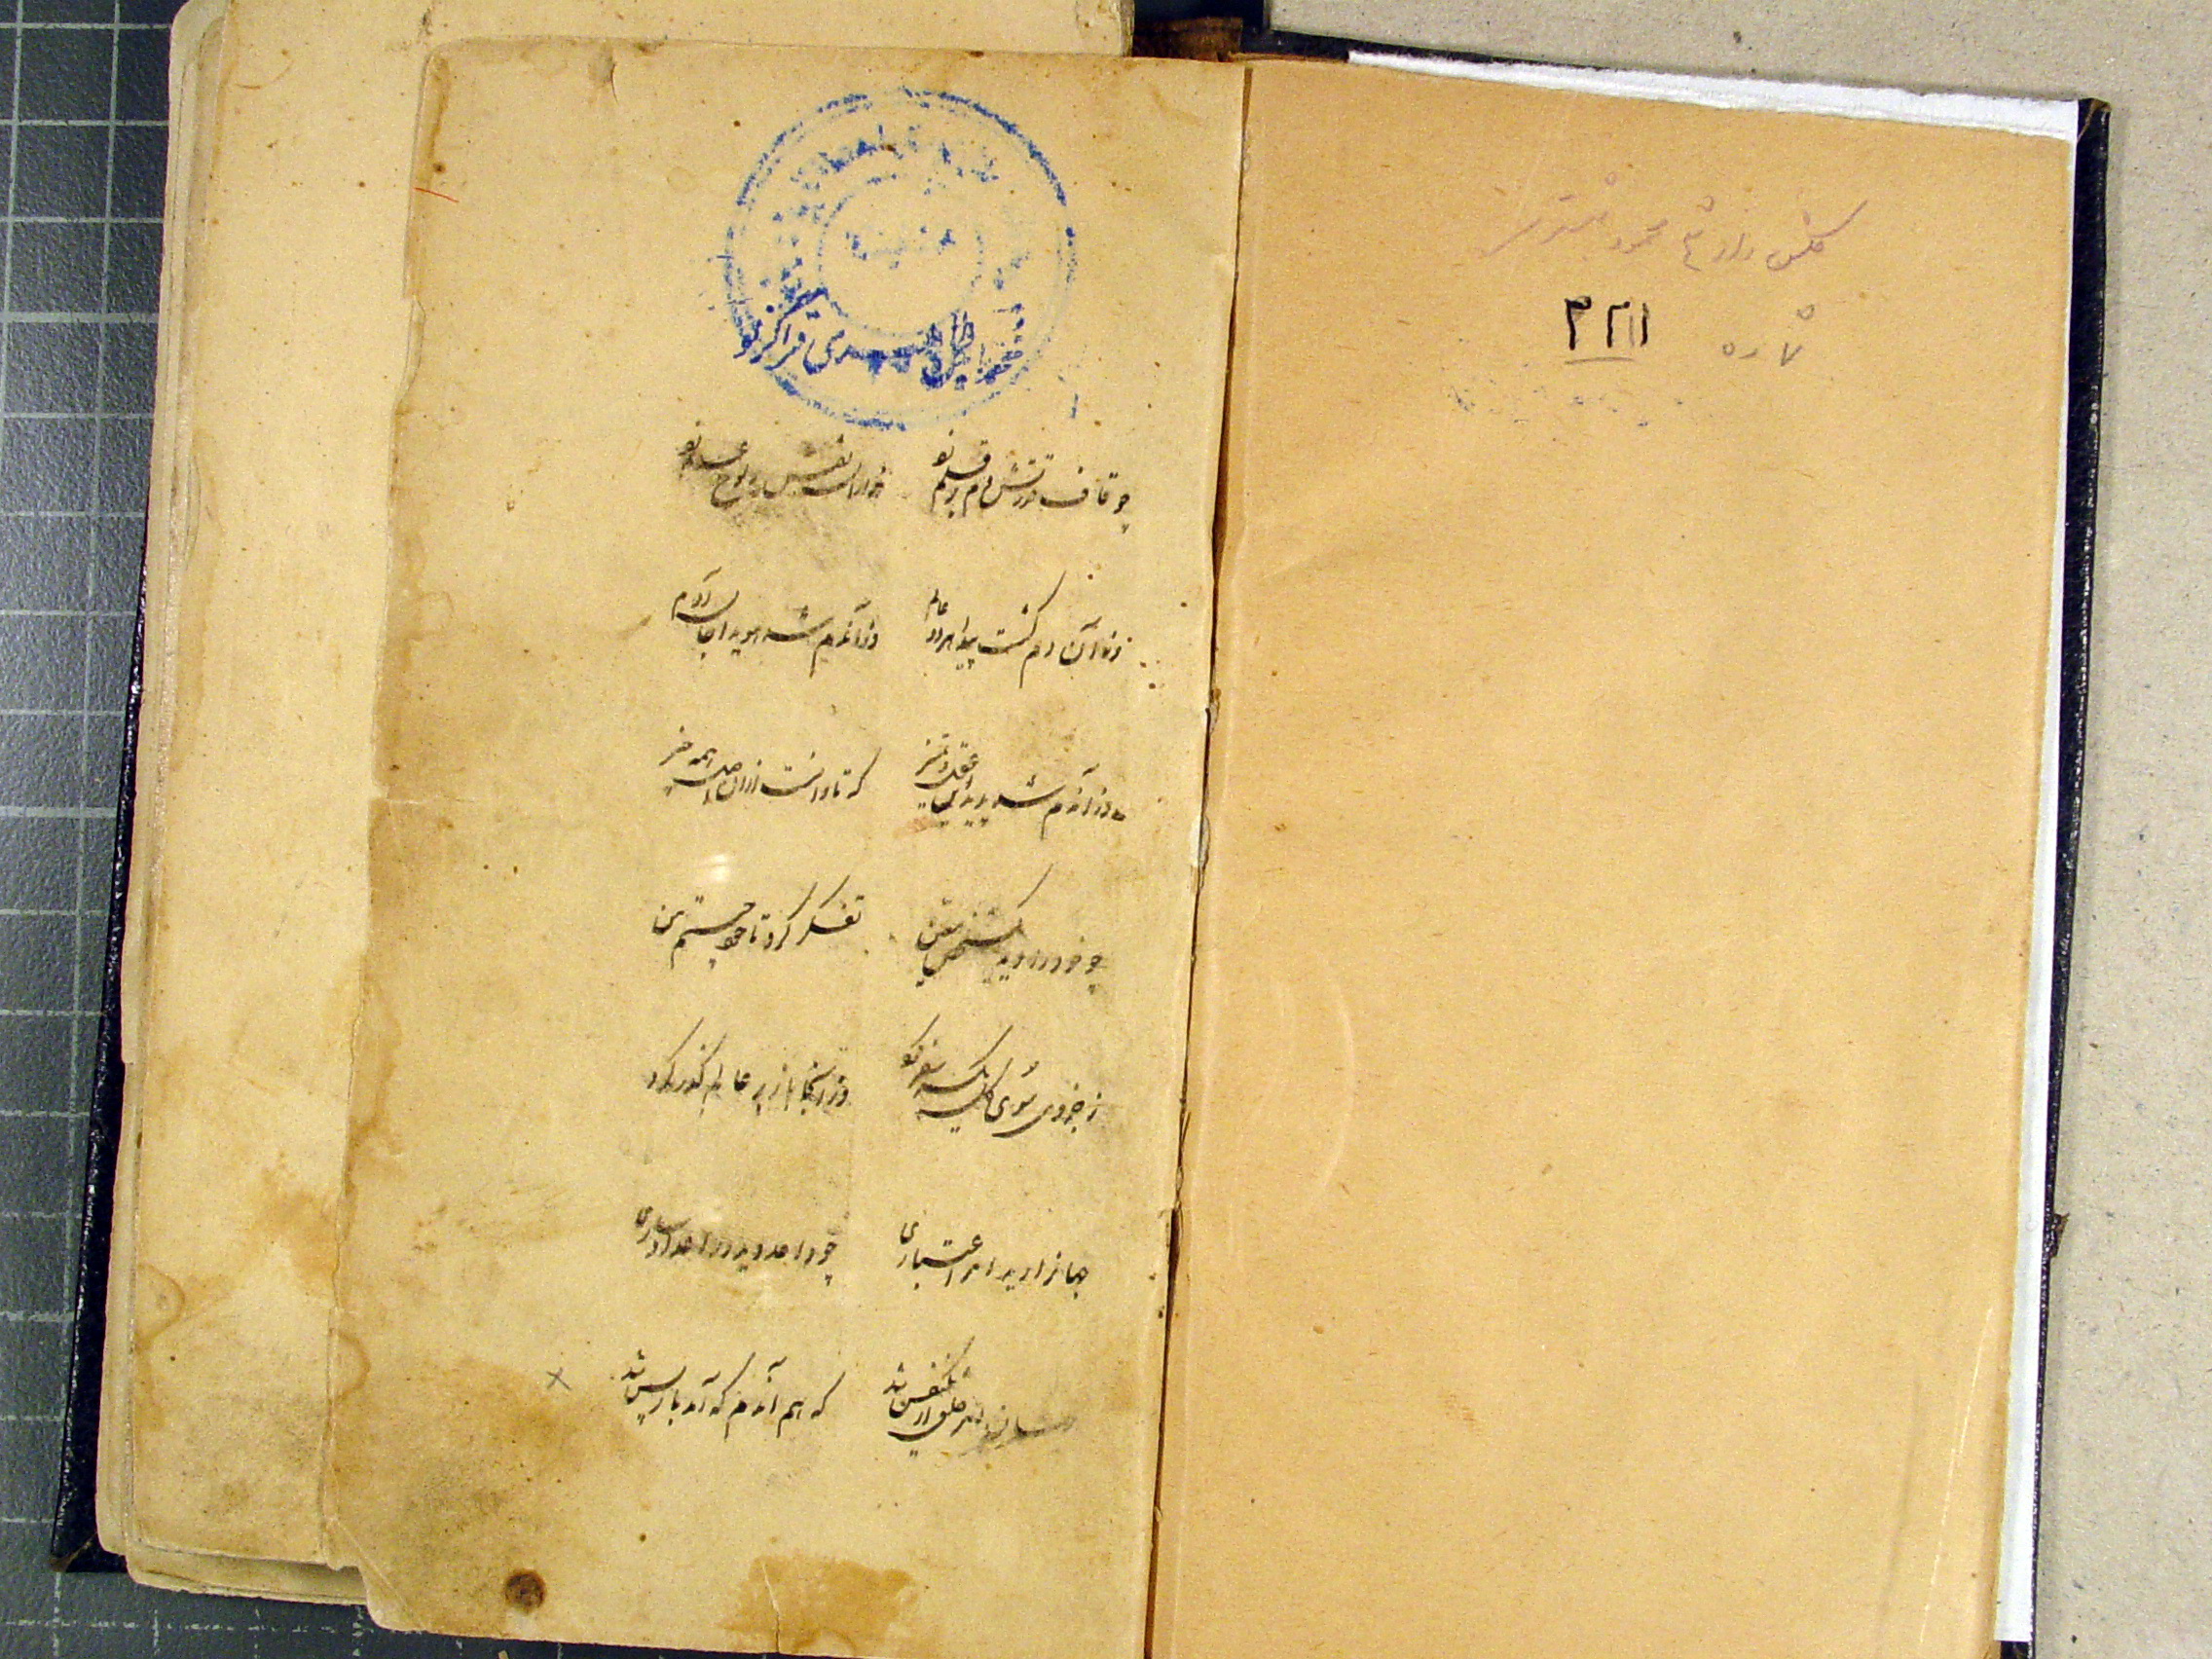 گلشن راز شیخ محمود شبستری
شماره ۲۲۱۱
چو قاف قدرتش دم بر قلم زد هزاران نقش بر لوح عدم زد
از آن دم گشت پیدا هر دو عالم وز آندم شد هویدا جان آدم
در آدم شد پدید این عقل و تمیز که تا دانست از آن اصل همه چیز
چو خود را دید یک شخص معین تفکر کرد تا خود چیستم من
ز جزوی سوی کلی یک سفر کرد وز آنجا باز بر عالم گذر کرد
جهانرا دید امر اعتباری چو واحد دیده در اعداد ساری
جهان خلق و امر از یکنفس شد که هم آندم که آمد باز پس شد